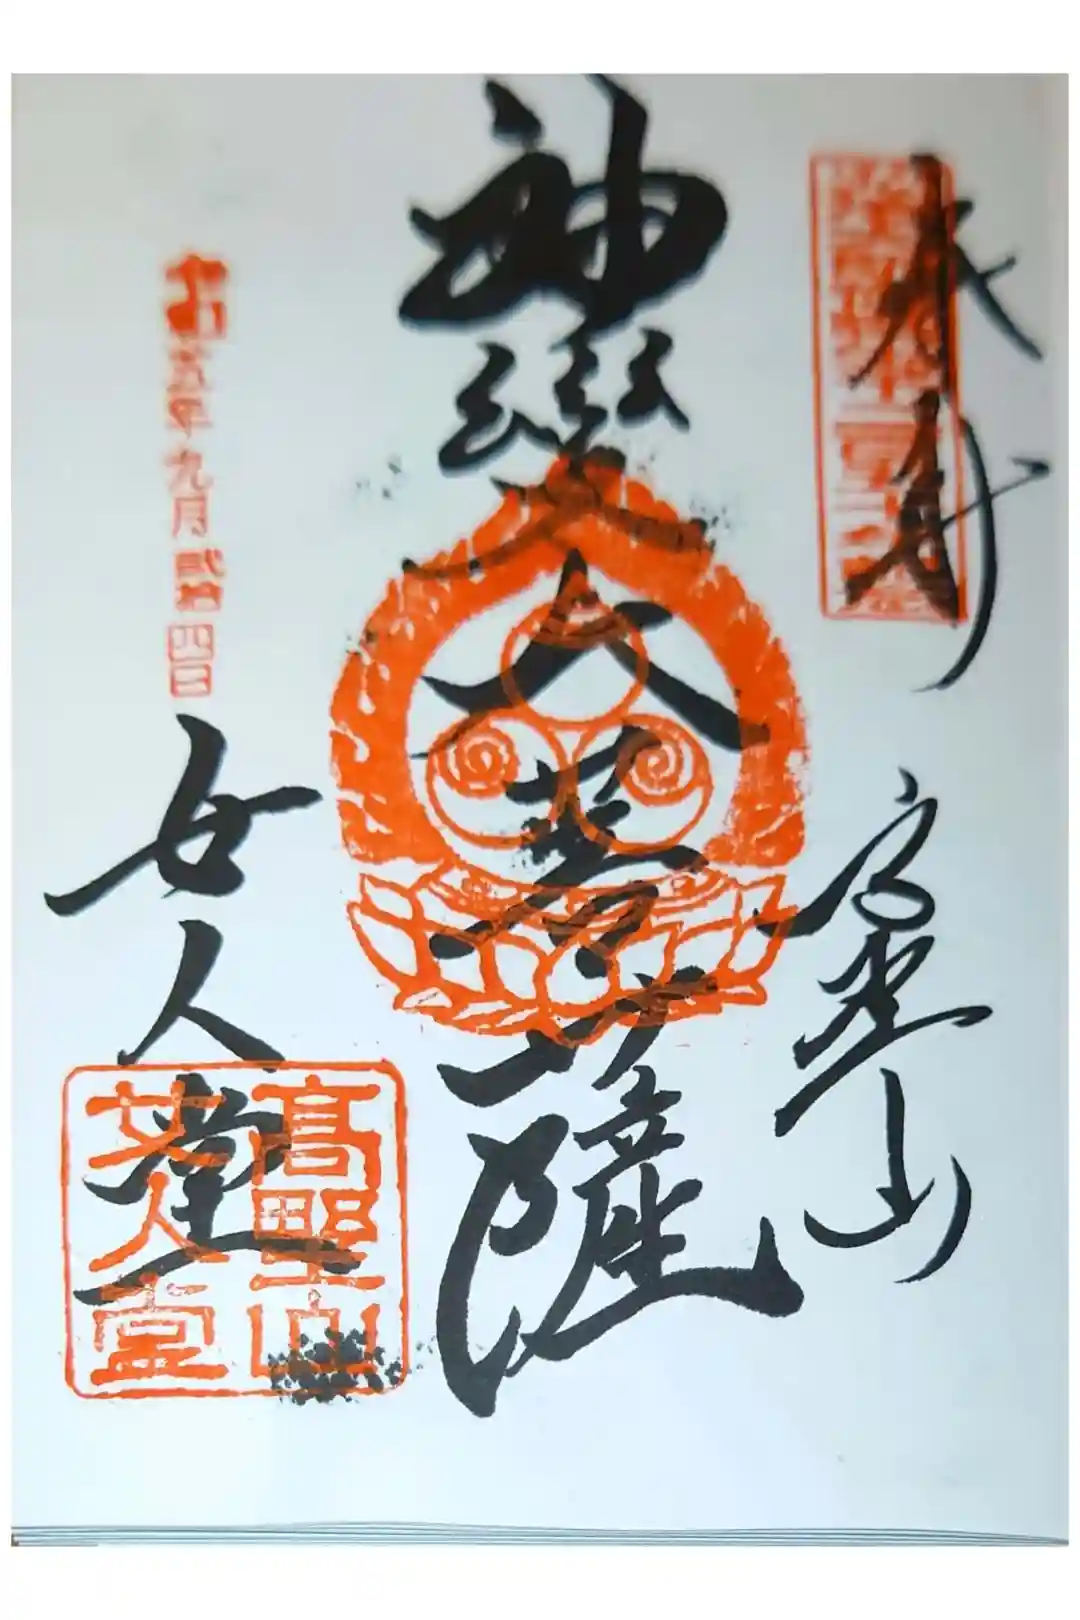 奉拝
高野山
神變大菩薩
令和五年九月弐拾四日
女人堂
髙野山
女人堂